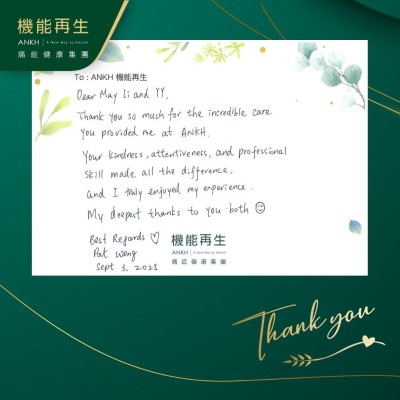 機能再生
ANKH | A New Key to Health
痛症健康集團
To : ANKH 機能再生
Dear May Li and YY,
Thank you so much for the incredible care
you provided me at ANKH.
Your kindness, attentiveness, and professional
skill made all the difference,
and I truly enjoyed my experience.
My deepest thanks to you both ☺
Best Regards ♡
Pat Wong
Sept 3, 2025
機能再生
ANKH | A New Key to Health
痛症健康集團
Thank you